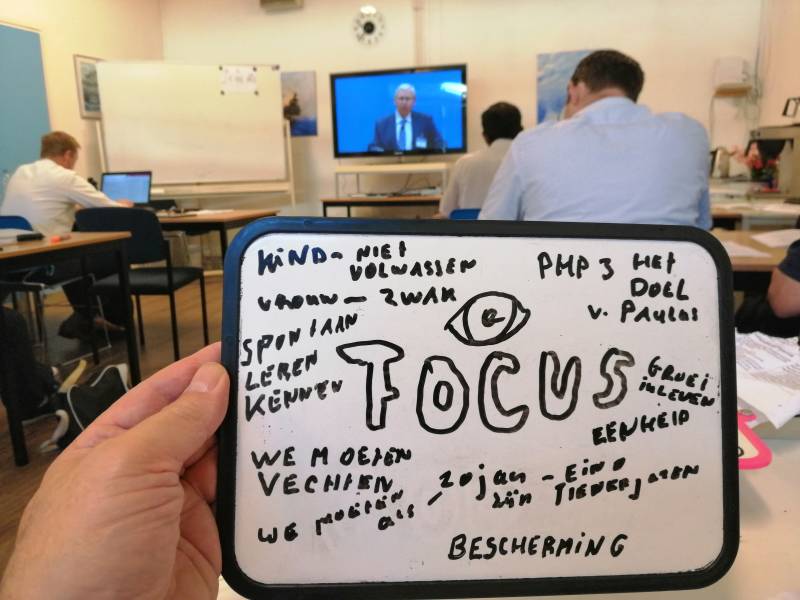 KIND - NIET
VOLWASSEN
VROUW - ZWAK
SPONTAAN
LEREN
KENNEN
PHP 3 HET
DOEL
v. PAULUS
FOCUS
GROEI
in LEVEN
EENHEID
WE MOETEN
VECHTEN
WE MOETEN
als - 20 jan - EIND
zijn TIENERJAREN
BESCHERMING